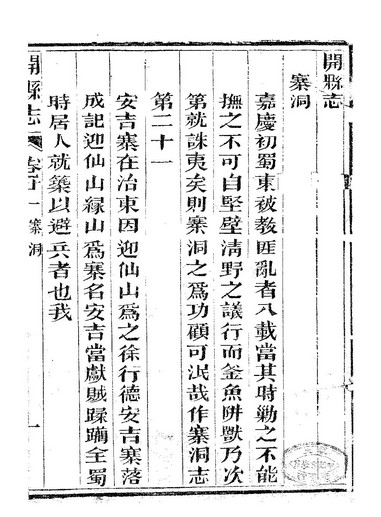 開縣志
寨洞
嘉慶初蜀東被教匪亂者八載當其時勦之不能
撫之不可自堅壁清野之議行而釜魚阱獸乃次
第就誅夷矣則寨洞之為功顧可泯哉作寨洞志
第二十一
安吉寨在治東因迎仙山為之徐行德安吉寨落
成記迎仙山緣山為寨名安吉當獻賊蹂躪全蜀
時居人就築以避兵者也我
開縣志 寨洞 一